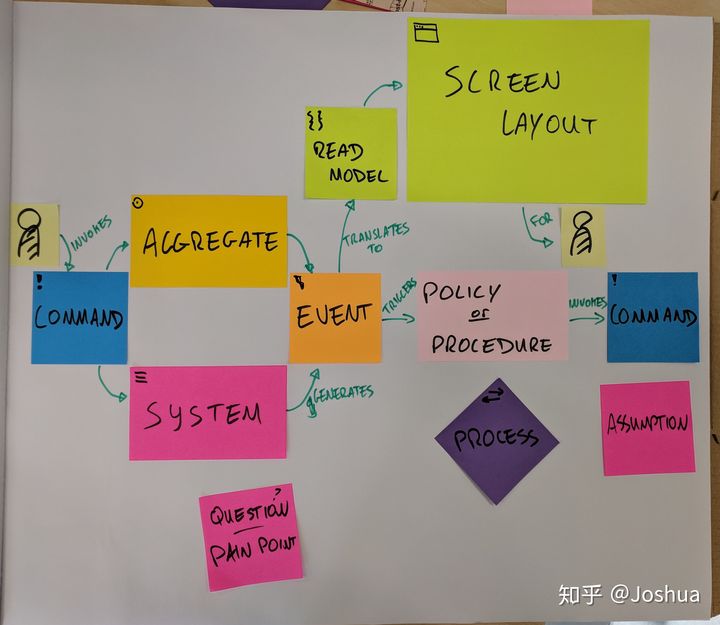 SCREEN
LAYOUT
{}
READ
MODEL
INVOKES
AGGREGATE
TRANSLATES
TO
FOR
!
COMMAND
EVENT
TRIGGERS
POLICY
or
PROCEDURE
INVOKES
!
COMMAND
SYSTEM
GENERATES
PROCESS
ASSUMPTION
?
QUESTION
PAIN POINT
知乎 @Joshua